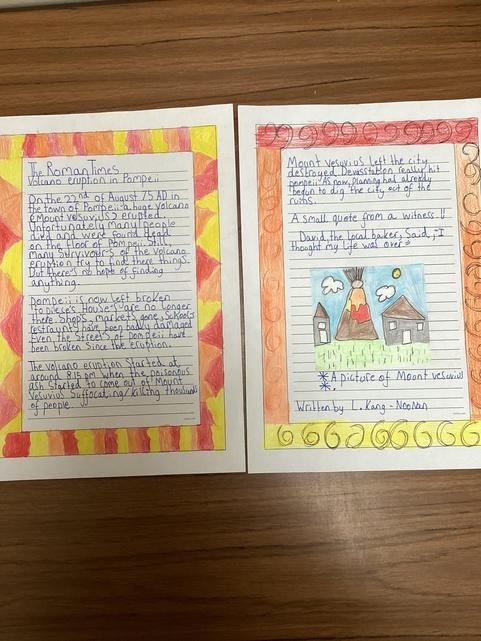 The Roman Times
Volcano eruption in Pompeii
On the 22nd of August 75 AD in
the town of Pompeii a huge Volcano
Mount vesuvius erupted.
Unfortunately many people
died and were found dead
on the floor of Pompeii. Still,
many Survivours of the Volcano
eruption try to find there things.
But there's no hope of finding
anything.
Pompeii is now left broken
to Pieces. Houses are no longer
there. Shops, markets gone, Schools
restraynts have been badly damaged
Even the Streets of Pompeii have
been broken Since the eruption.
The volcano eruption Started at
around 8:15 pm when the poisonous
ash Started to come out of Mount
Vesuvius Suffocating/killing thousands
of people.
Mount vesuvius left the city
destroyed. Devasstation really hit
pompeii. As now, planning had already
begun to dig the city out of the
ruins.
A small quote from a witness !!
David, the local baker, Said, "I
thought my life was over."
A picture of Mount vesuvius
Written by L. Kang-Noonan